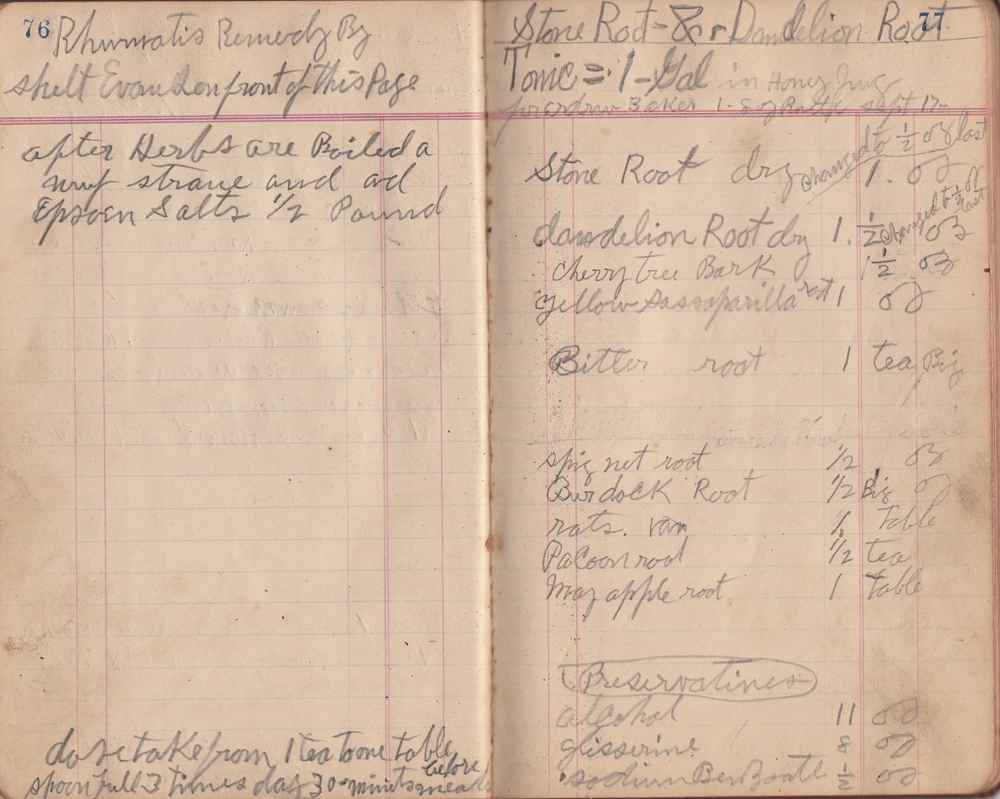 76
Rhumatis Remedy By
shelt Evans on front of this Page
after Herbs are Boiled a
nuf strane and ad
Epsoen Salts 1/2 Pound
dose take from 1 tea to one table
spoon full 3 times day 30 minits before meals
77
Stone Root - & or Dandelion Root
Tonic = 1 - Gal in Honey Jug
for 1. 8 oz sept 17-
Stone Root dry changed to 1/2 oz last 1. oz
dandelion Root dry 1. 1/2 changed to 1/2 oz last oz
cherry tree Bark 1 1/2 oz
yellow sassaparilla root 1 oz
Bitter root 1 tea Big
spig net root 1/2 oz
Burdock Root 1/2 Big oz
rats. van 1/2 Table
Pacoon root 1/2 tea
may apple root 1 Table
Preservatines
alcohal 11 oz
glisserine 8 oz
sodium Benzoate 1/2 oz